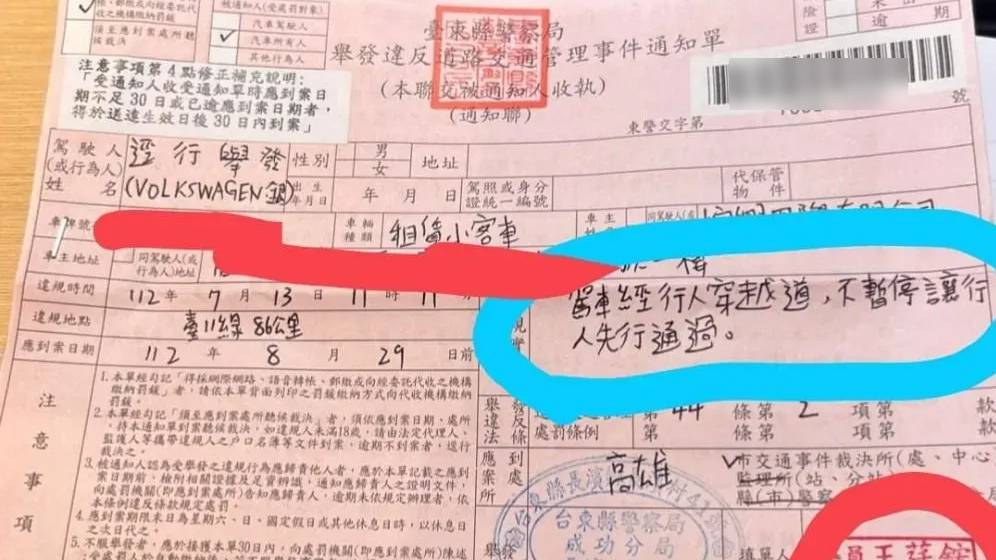 郵繳或向經委託代收之機構繳納罰鍰
須至應到案處所聽候裁決
被通知人(受處罰對象)
汽車駕駛人
汽車所有人
其他行為人
臺東縣警察局
舉發違反道路交通管理事件通知單
(本聯交被通知人收執)
(通知聯)
逾期
東警交字第
號
注意事項第4點修正補充說明:
「受通知人收受通知單時應到案日
期不足30日或已逾應到案日期者,
得於送達生效日後30日內到案」
駕駛人(或行為人)姓名
逕行舉發
(VOLKSWAGEN銀)
性別
男
女
地址
出生年月日
年 月 日
駕照或身分證統一編號
代保管物件
車牌號
車輛種類
租賃小客車
車主
同駕駛人(或
車主地址
同駕駛人(或行為人)地址
違規時間
112年7月13日11時11分
違規地點
臺11線86公里
駕車經行人穿越道,不暫停讓行
人先行通過。
應到案日期
112年8月29日前
注意事項
1.本單經勾記「得採網際網路、語音轉帳、郵繳或向經委託代收之機構
繳納罰鍰」者,請依本單背面列印之罰鍰繳納方式向代收機構繳納罰鍰。
2.本單經勾記「須至應到案處所聽候裁決」者,須依應到案日期、處所,
持本通知單到案聽候裁決。如違規人未滿18歲,請由法定代理人、
監護人等攜帶違規人之戶口名簿等文件到案,逾期不到案者,逕行
裁決之。
3.被通知人認為受舉發之違規行為應歸責他人者,應於本單記載之應到
案日期前,檢附相關證據及足資辨識、通知應歸責人之證明文件,
向處罰機關(即應到案處所)告知應歸責人,逾期未依規定辦理者,依
本條例違反條款規定處罰。
4.應到案期限末日為星期六、日、國定假日或其他休息日時,以休息日
之次日代之。
5.不服舉發者,應於接獲本單30日內,向處罰機關(即應到案處所)陳述
舉發違反法條
處罰條例
第44條第2項第 款
第 條第 項第 款
應到案處所
高雄
市交通事件裁決所(處、中心)
監理所(站、分站)
縣(市)警察
台東縣警察局
成功分局
填單人